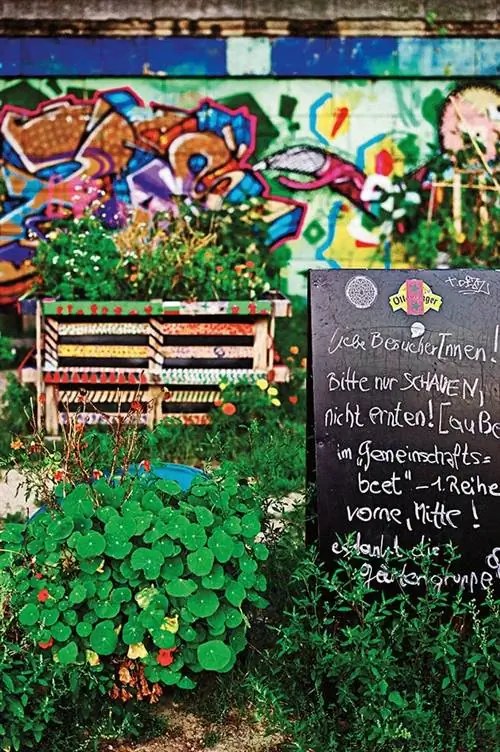 Ottakringer
Liebe BesucherInnen!
Bitte nur SCHAUEN,
nicht ernten! [auße
im "Gemeinschafts=
beet" – 1. Reihe
vorne, Mitte!
es dankt die
Gärtengruppe